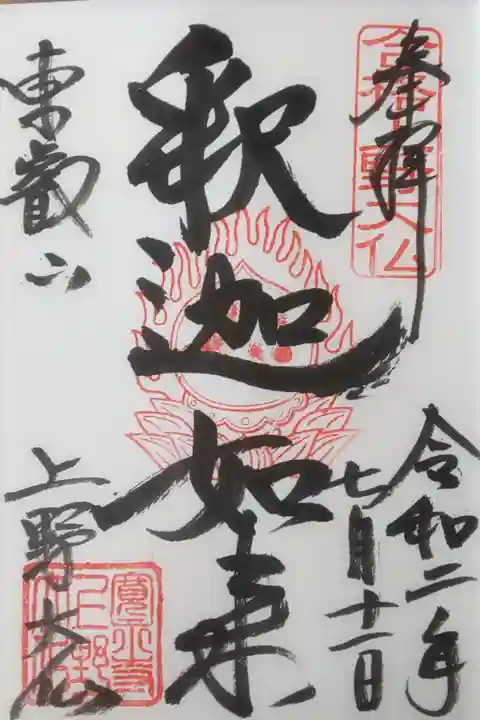 奉拝
合格上野大仏
令和二年
七月十一日
釈迦如来
東叡山
上野大仏
寛永寺